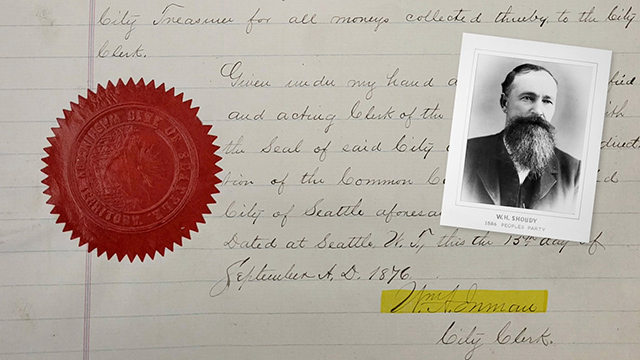 City Treasurer for all moneys collected thereby to the City
Clerk.
Given under my hand
and acting Clerk of the
the Seal of said City
tion of the Common
City of Seattle afores
Dated at Seattle, W. T., this the 15th day of
September A. D. 1876.
Wm. A. Inman
City Clerk.
W.H. SHOUDY
1886 PEOPLES PARTY